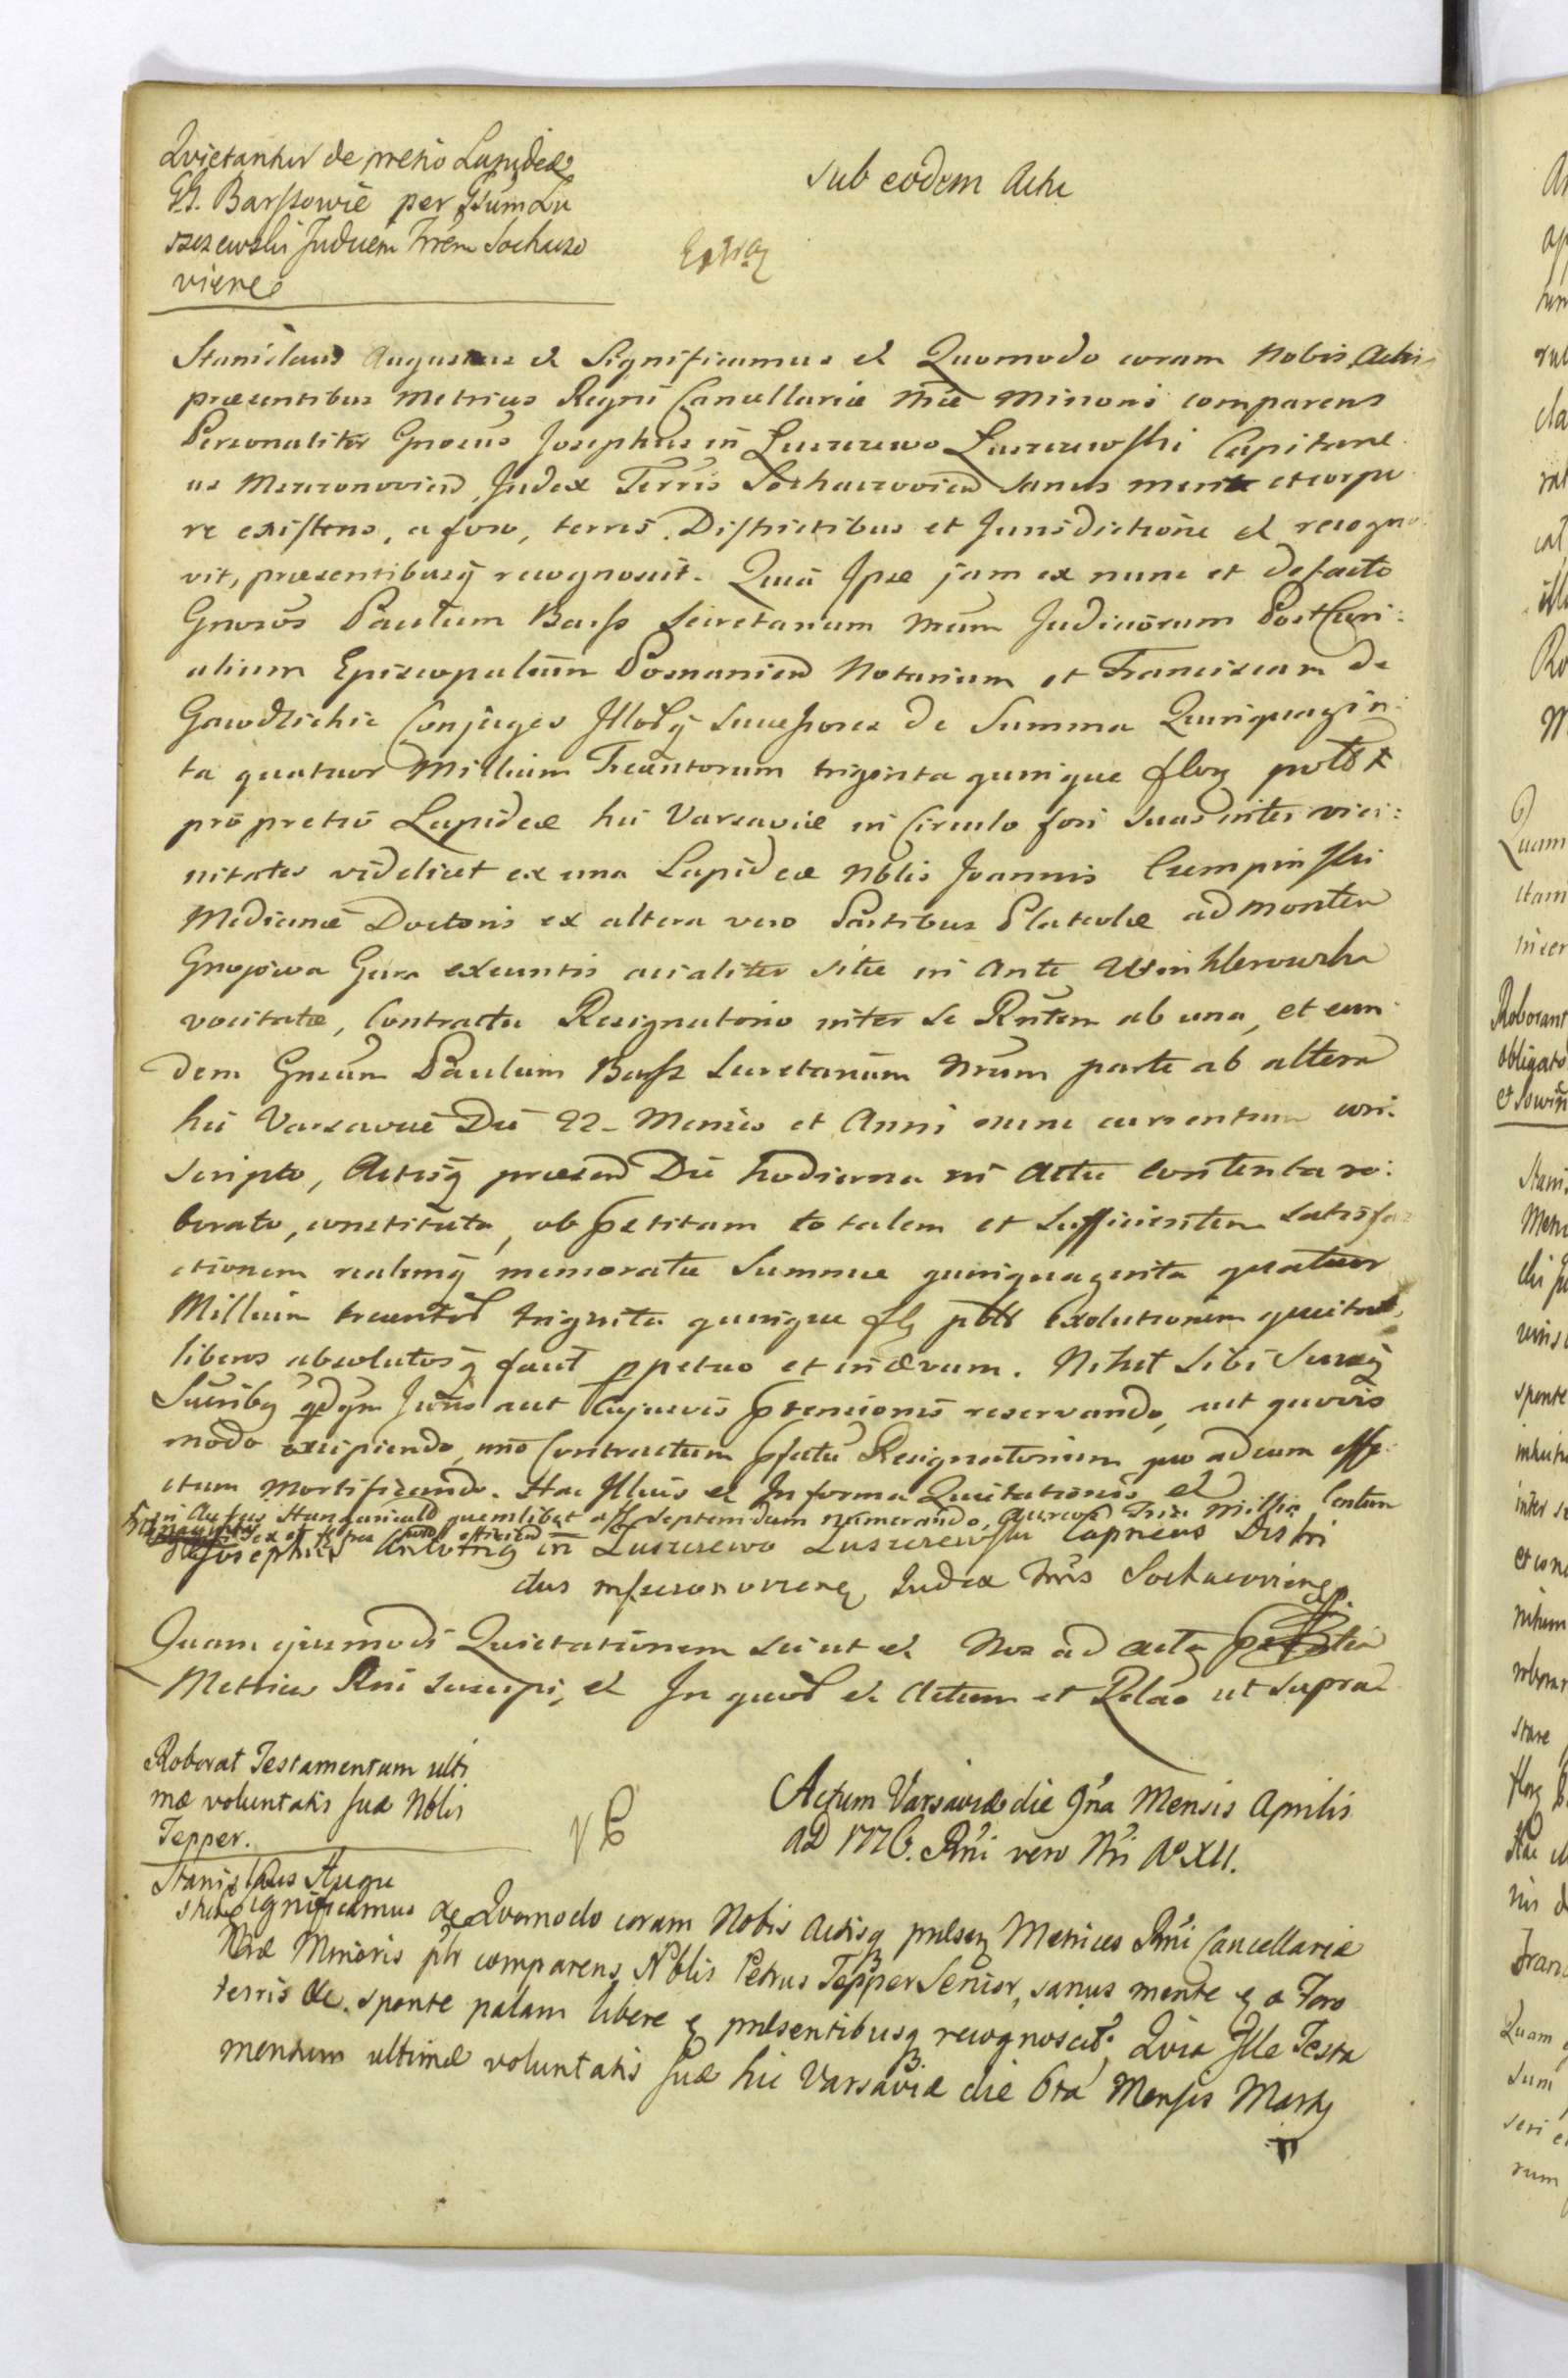 Qvietantur de pretio Lapideæ
GG. Barssowie per Gsum Lu
szczewski Judicem Trrem Sochaczo
viene
sub eodem Actu
Extra
Stanislaus Augustus & Significamus & Quomodo coram Nobis Actis
præsentibus Metrices Regni Cancellariæ Nræ Minoris comparens
Personaliter Gnosus Josephus in Luszczewo Luszczewski Capitane
us Mszczonoviens Judex Terris Sochaczoviens sanus mente et corpo
re existens, a foro, terris, Districtibus et Jurisdictione & recogno
vit, præsentibusq recognoscit. Quia Ipse jam ex nunc et de facto
Gnosos Paulum Barss Secretarium Nrum Judiciorum Post Curi:
alium Episcopalium Posnaniens Notarium et Franciscam de
Gawdlickie Conjuges Illorq Successores de Summa Quinquagin
ta quatuor Millium Trecentorum triginta quinque flor polo
pro pretio Lapideæ hic Varsaviæ in Circulo fori suas inter vici:
nitates videlicet ex una Lapideæ Nblis Joannis Czempinski
Medicinæ Doctoris ex altera vero Partibus Plateolæ ad montem
Gnojowa Gura exeuntis acialiter sitæ in Ante Winklerowska
vocitatæ, Contractu Resignatorio inter se Rntem ab una, et eun
dem Gnsum Paulum Barss Secretarium Nrum parte ab altera
hic Varsaviæ Die 22 Mensis et Anni nunc currentium con
scripto, Actisq præsen Die hodierna in Actu contenta ro:
borato, constituta, ob petitam totalem et sufficientem satisfa
ctionem realemq memoratæ Summæ quinquaginta quatuor
Millium trecentor triginta quinque fl pol Exolutionem quietat
liberos absolutosq facit ppetuo et in ævum. Nihil sibi Suisq
Sucribq qdqm Juris aut Cujusvis ptensionis reservando, aut quovis
modo excipiendo, imo Contractum pfatu Resignatorium quo ad eum effe
ctum Mortificando. Hac Illius & In forma Quietationis &
in Aureis Hungaricalib quemlibet a fl septemdecim numerando, Aureos Tria Millia Centum
Josephus Antonius in Luszczewo Luszczewski Capneus Distri
ctus Mszczonoviens Judex Trris Sochaczoviens
Quam ejusmodi Quietationem sicut & Nos ad acta
Metrices Rni suscepi, & In quor & Actum et Relao ut supra
Roborat Testamentum ulti
mæ voluntatis suæ Nblis
Tepper.
Actum Varsaviæ die 9na Mensis Aprilis
AD 1776. Rni vero Nri Ao XII.
Stanislaus Augu
stus Significamus & Qvomodo coram Nobis Actisq pnlseq Metrices Rni Cancellariæ
Nræ Minoris plr comparens Nblis Petrus Tepper Senior, sanus mente & a Foro
terris &c. sponte palam libere & pnlsentibusq recognoscit. Qvia Ille Testa
mentum ultimæ voluntatis suæ hic Varsaviæ die 6ta Mensis Martij